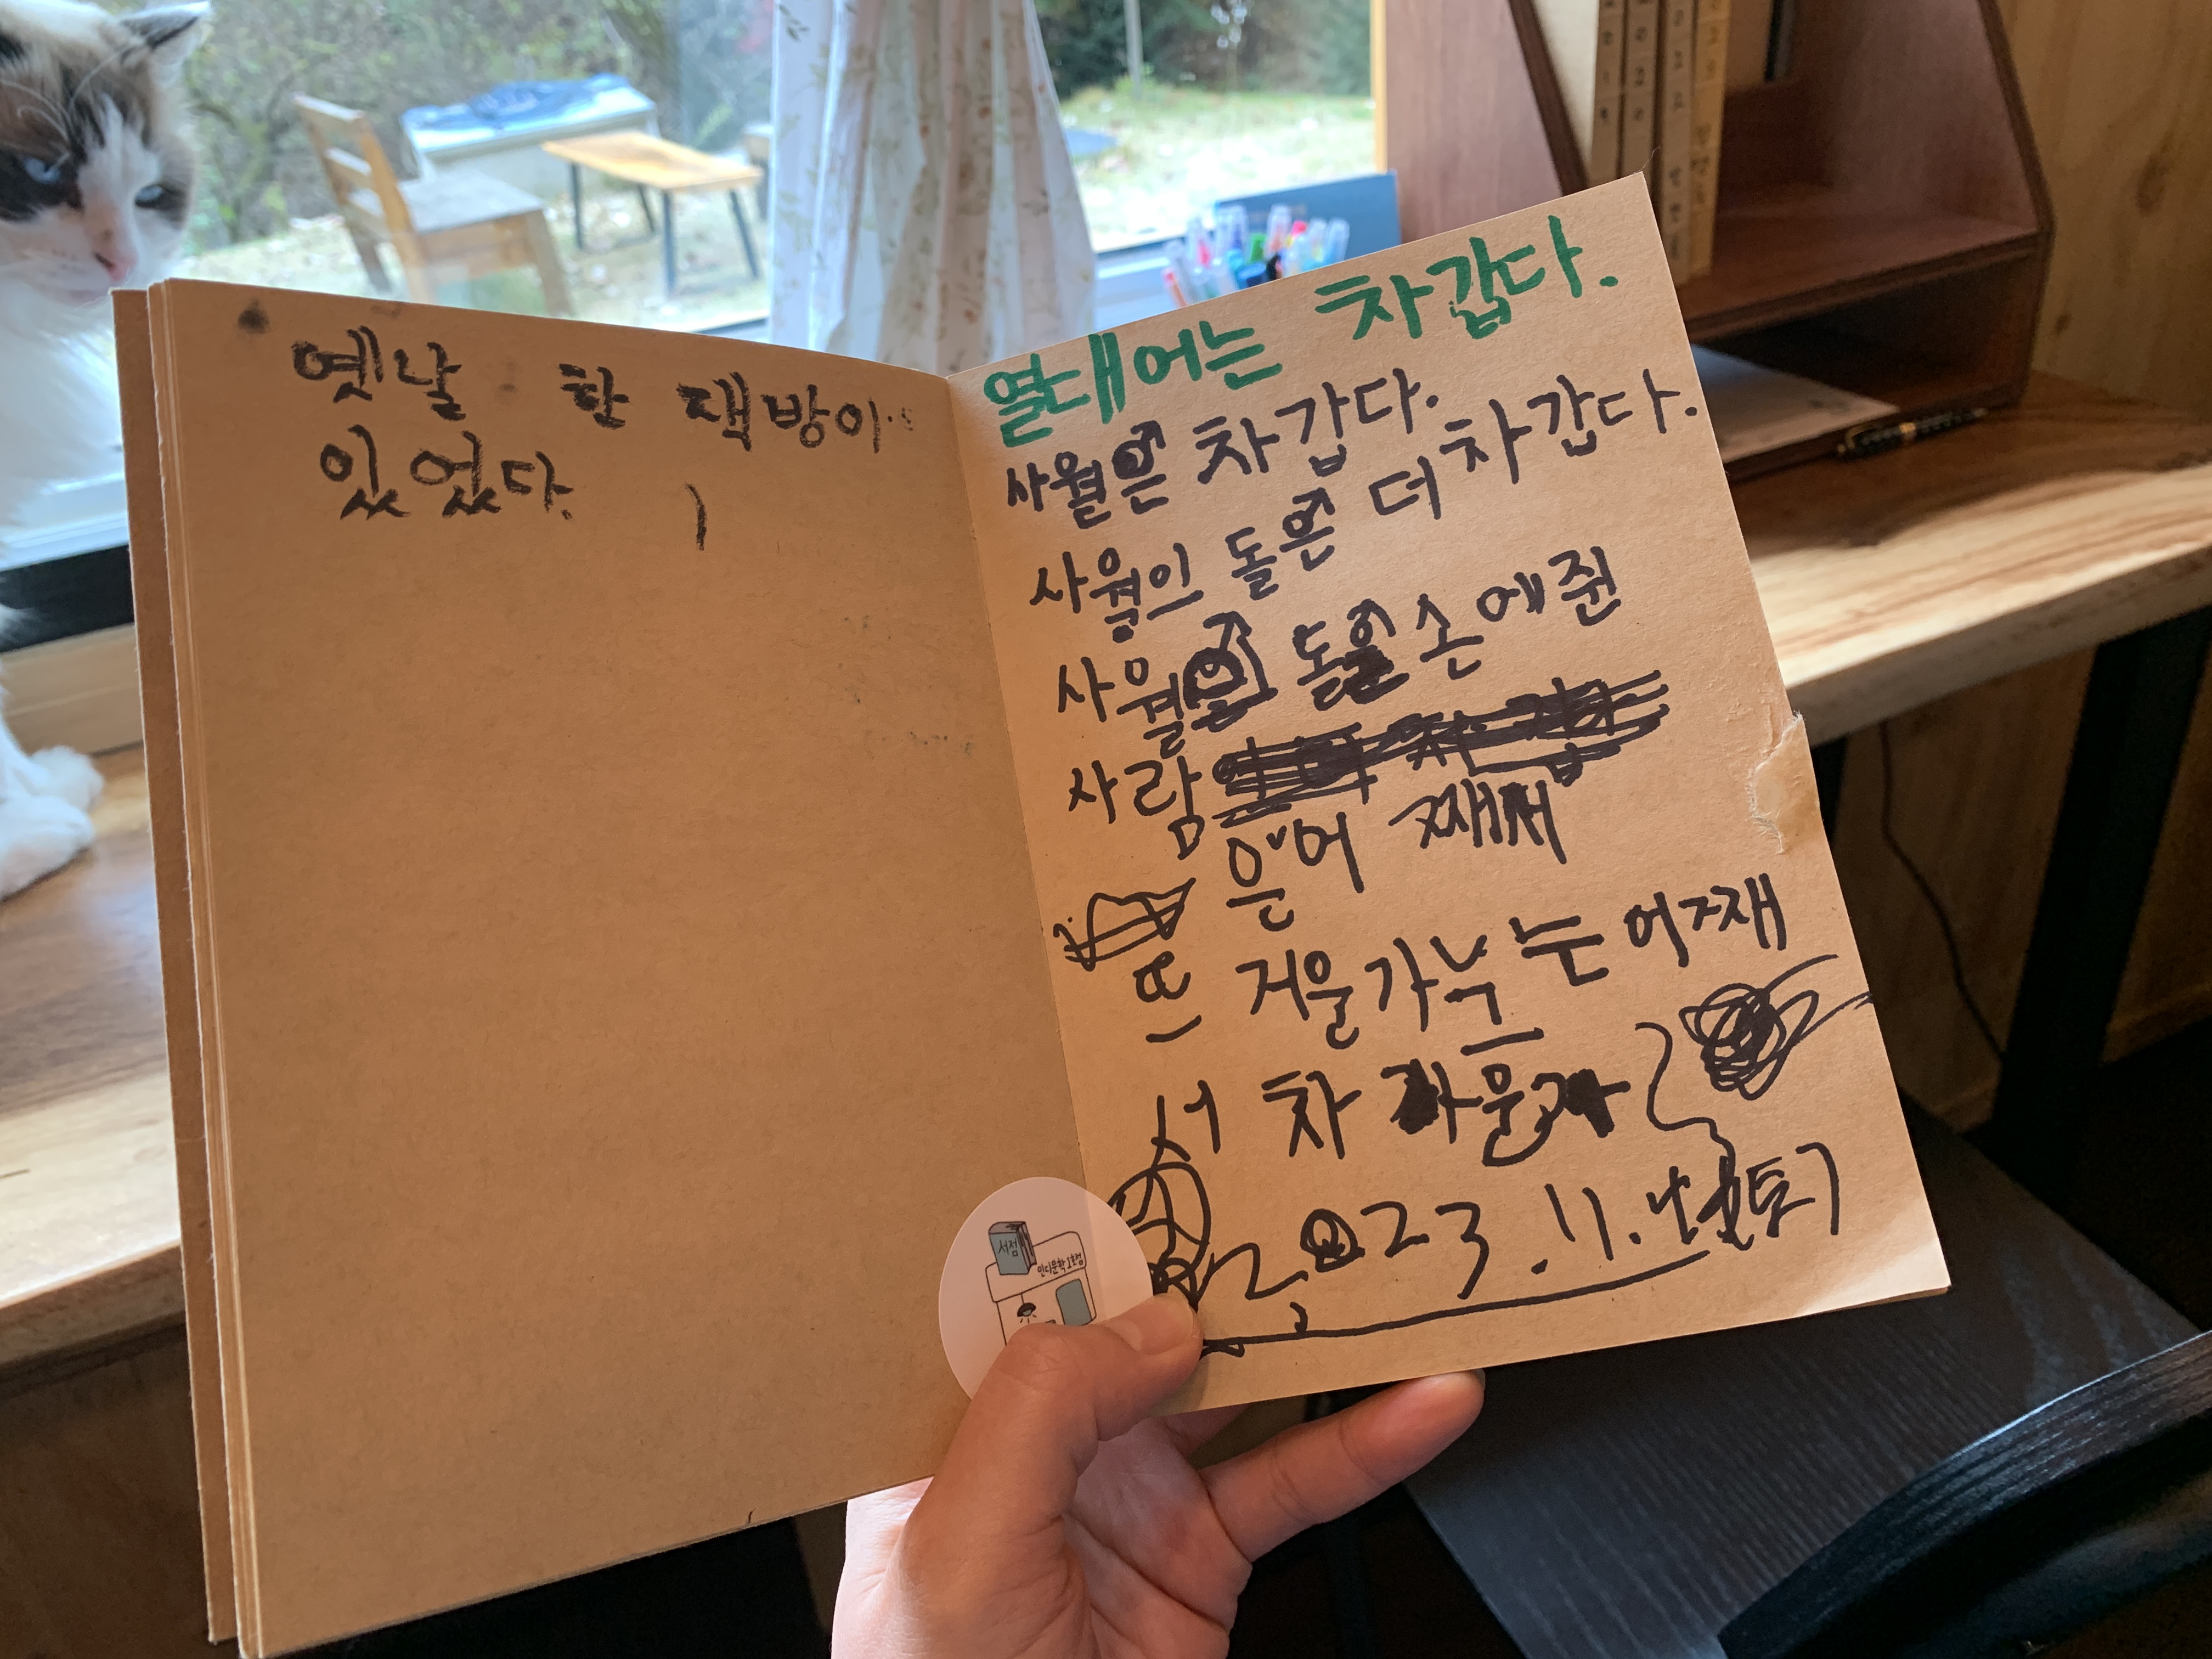 옛날 한 책방이
있었다.
열대어는 차갑다.
사월은 차갑다.
사월의 돌은 더 차갑다.
사월 돌을 손에 쥔
사람
은 어째서
또 겨울 가 는 어째
서 차 운
2023.11.
서점
인디문학1호점